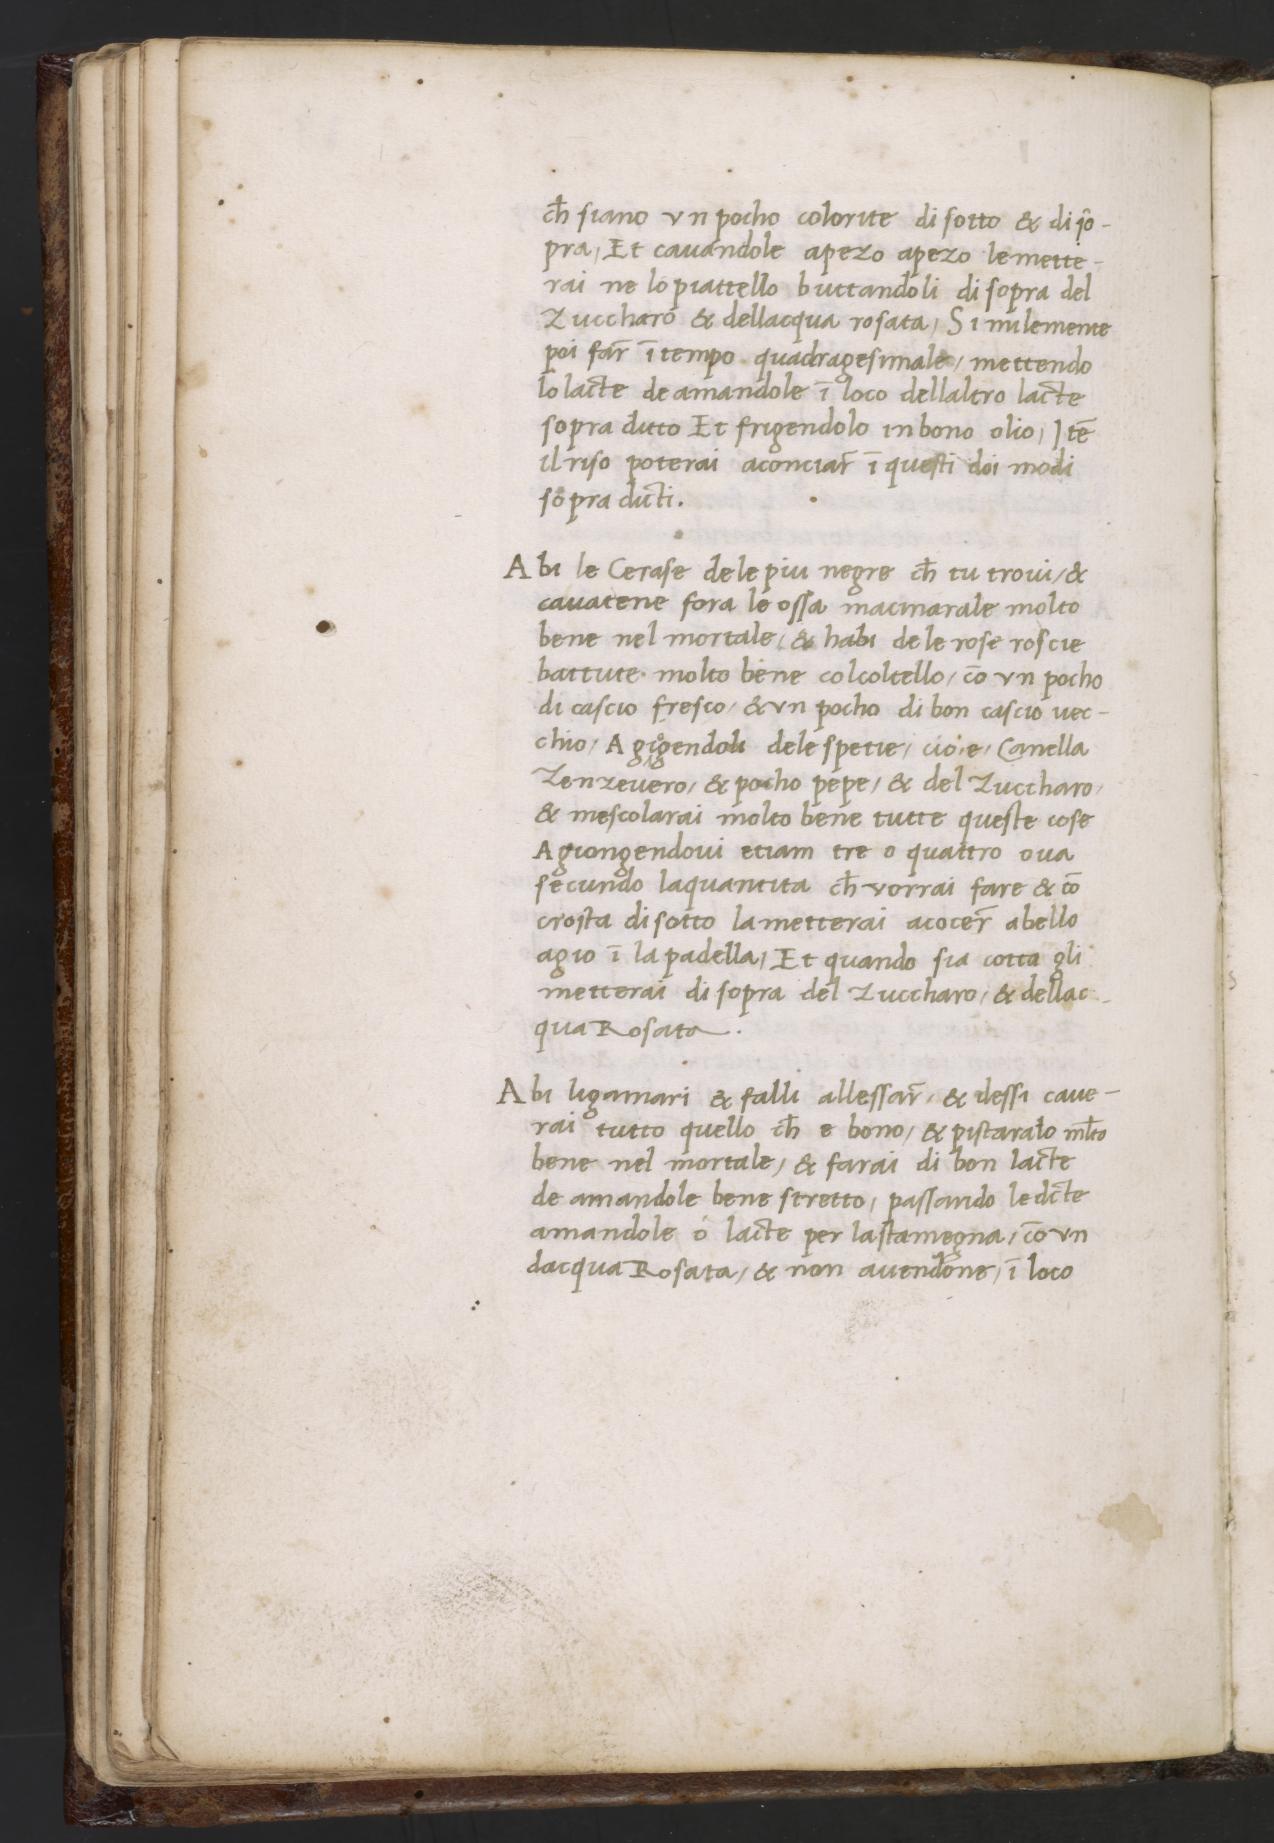 ch̄ siano vn pocho colorite di sotto & di so-
pra, Et cauandole apezo apezo le mette-
rai ne lo piattello buttandoli di sopra del
Zuccharo & dellacqua rosata, Similemente
poi far̄ ī tempo quadragesimale, mettendo
lo lacte de amandole ī loco dellaltro lacte
sopra ditto Et frigendolo in bono olio, Itē
il riso poterai aconciar̄ ī questi doi modi
sopra dicti.
Abi le Cerase dele piu negre ch̄ tu troui, &
cauatene fora le ossa macinarale molto
bene nel mortale, & habi dele rose roscie
battute molto bene col coltello, cō vn pocho
di cascio fresco, & vn pocho di bon cascio uec-
chio, Agigendoli dele spetie, cio e, Canella
Zenzeuero, & pocho pepe, & del Zuccharo,
& mescolarai molto bene tutte queste cose
Agiongendoui etiam tre o quattro oua
secundo la quantita ch̄ vorrai fare & cō
crosta di sotto la metterai acocer̄ abello
agio ī la padella, Et quando sia cotta gli
metterai di sopra del Zuccharo, & dellac-
qua Rosata.
Abi ligamari & falli allessar̄, & dessi caue-
rai tutto quello ch̄ e bono, & pistaralo mlto
bene nel mortale, & farai di bon lacte
de amandole bene stretto, passando le dcte
amandole o lacte per la stamegna, cō vn
dacqua Rosata, & non auendone, ī loco